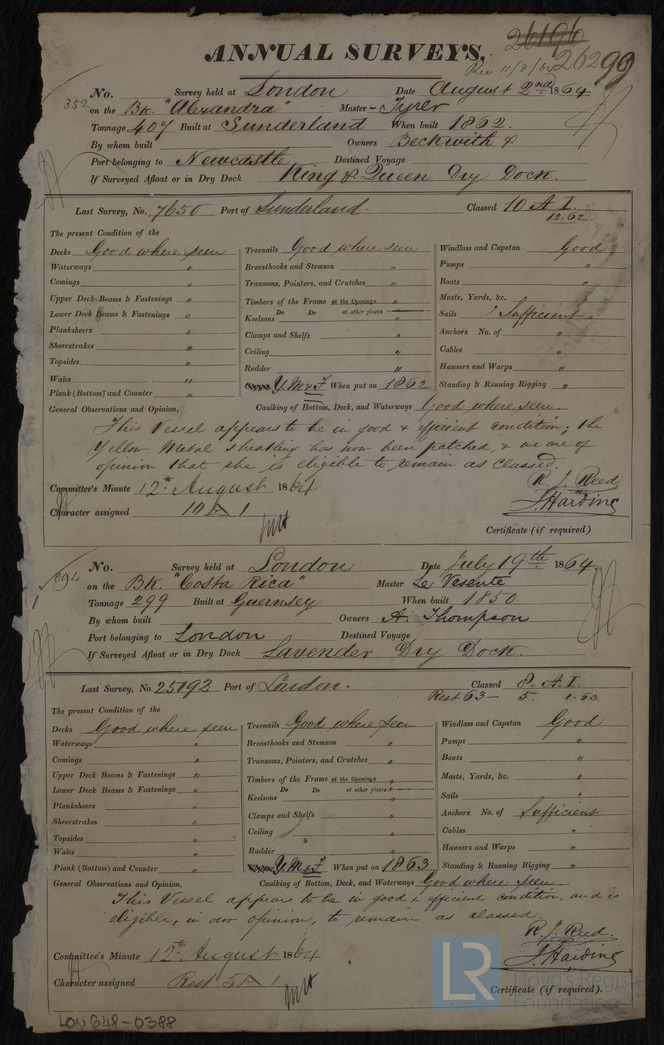 26196
ANNUAL SURVEYS,
Rec 11/8/64 26299
No. Survey held at London Date August 2nd 1864
352 on the Bk. "Alexandra" Master - Tyrer
Tonnage 407 Built at Sunderland When built 1862.
By whom built Owners Beckwith &
Port belonging to Newcastle Destined Voyage
If Surveyed Afloat or in Dry Dock King & Queen Dry Dock.
Last Survey, No. 7650 Port of Sunderland. Classed 10 A 1.
12.62
The present Condition of the
Decks Good where seen Treenails Good where seen Windlass and Capstan Good
Waterways " Breasthooks and Stemson " Pumps "
Comings " Transoms, Pointers, and Crutches " Boats "
Upper Deck Beams & Fastenings " Timbers of the Frame at the Openings " Masts, Yards, &c. "
Lower Deck Beams & Fastenings " Keelsons Do Do at other places Sails Sufficient.
Planksheers " Clamps and Shelfs " Anchors No. of "
Sheerstrakes " Ceiling " Cables "
Topsides " Rudder " Hawsers and Warps "
Wales " Y.M & F When put on 1862 Standing & Running Rigging "
Plank (Bottom) and Counter " Caulking of Bottom, Deck, and Waterways Good where seen.
General Observations and Opinion,
This Vessel appears to be in good & efficient condition; the
Yellow Metal sheathing has now been patched, & we are of
opinion that she is eligible to remain as classed.
Committee's Minute 12th August 1864 R. J. Reed
Character assigned 10 A 1 J. Harding
Certificate (if required)
No. Survey held at London Date July 19th 1864
on the Bk. "Costa Rica" Master Le Vesente
Tonnage 299 Built at Guernsey When built 1850
By whom built Owners A. Thompson
Port belonging to London Destined Voyage
If Surveyed Afloat or in Dry Dock Lavender Dry Dock.
Last Survey, No. 25192 Port of London. Classed 8. A. 1.
Rest 63 - 5. 1.63
The present Condition of the
Decks Good where seen Treenails Good where seen Windlass and Capstan Good
Waterways " Breasthooks and Stemson " Pumps "
Comings " Transoms, Pointers, and Crutches " Boats "
Upper Deck Beams & Fastenings " Timbers of the Frame at the Openings " Masts, Yards, &c. "
Lower Deck Beams & Fastenings " Keelsons Do Do at other places Sails "
Planksheers " Clamps and Shelfs " Anchors No. of Sufficient
Sheerstrakes " Ceiling " Cables "
Topsides " Rudder " Hawsers and Warps "
Wales " Y.M & F When put on 1863 Standing & Running Rigging "
Plank (Bottom) and Counter " Caulking of Bottom, Deck, and Waterways Good where seen.
General Observations and Opinion,
This Vessel appears to be in good & efficient condition, and is
eligible, in our opinion, to remain as classed.
Committee's Minute 12th August 1864 R. J. Reed.
Character assigned Rest 5 A 1 J. Harding
Certificate (if required).
LON648-0388
LR
Lloyd's Register
Foundation